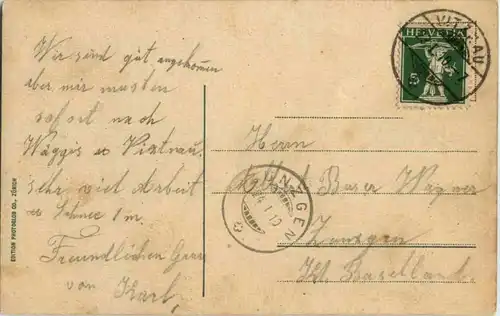 Wir sind gut angekommen
aber mir musten
sofort nach
Wäggis u Viztnau.
sehr viel Arbeit
u Schnee 1 m.
Freundlichen Gruss
von Karl,
EDITION PHOTOGLOB CO., ZÜRICH
HELVETIA
5
VITZNAU
Herrn
Baser Wagner
ZUNZGEN
Zunzgen
Kt. Baselland.